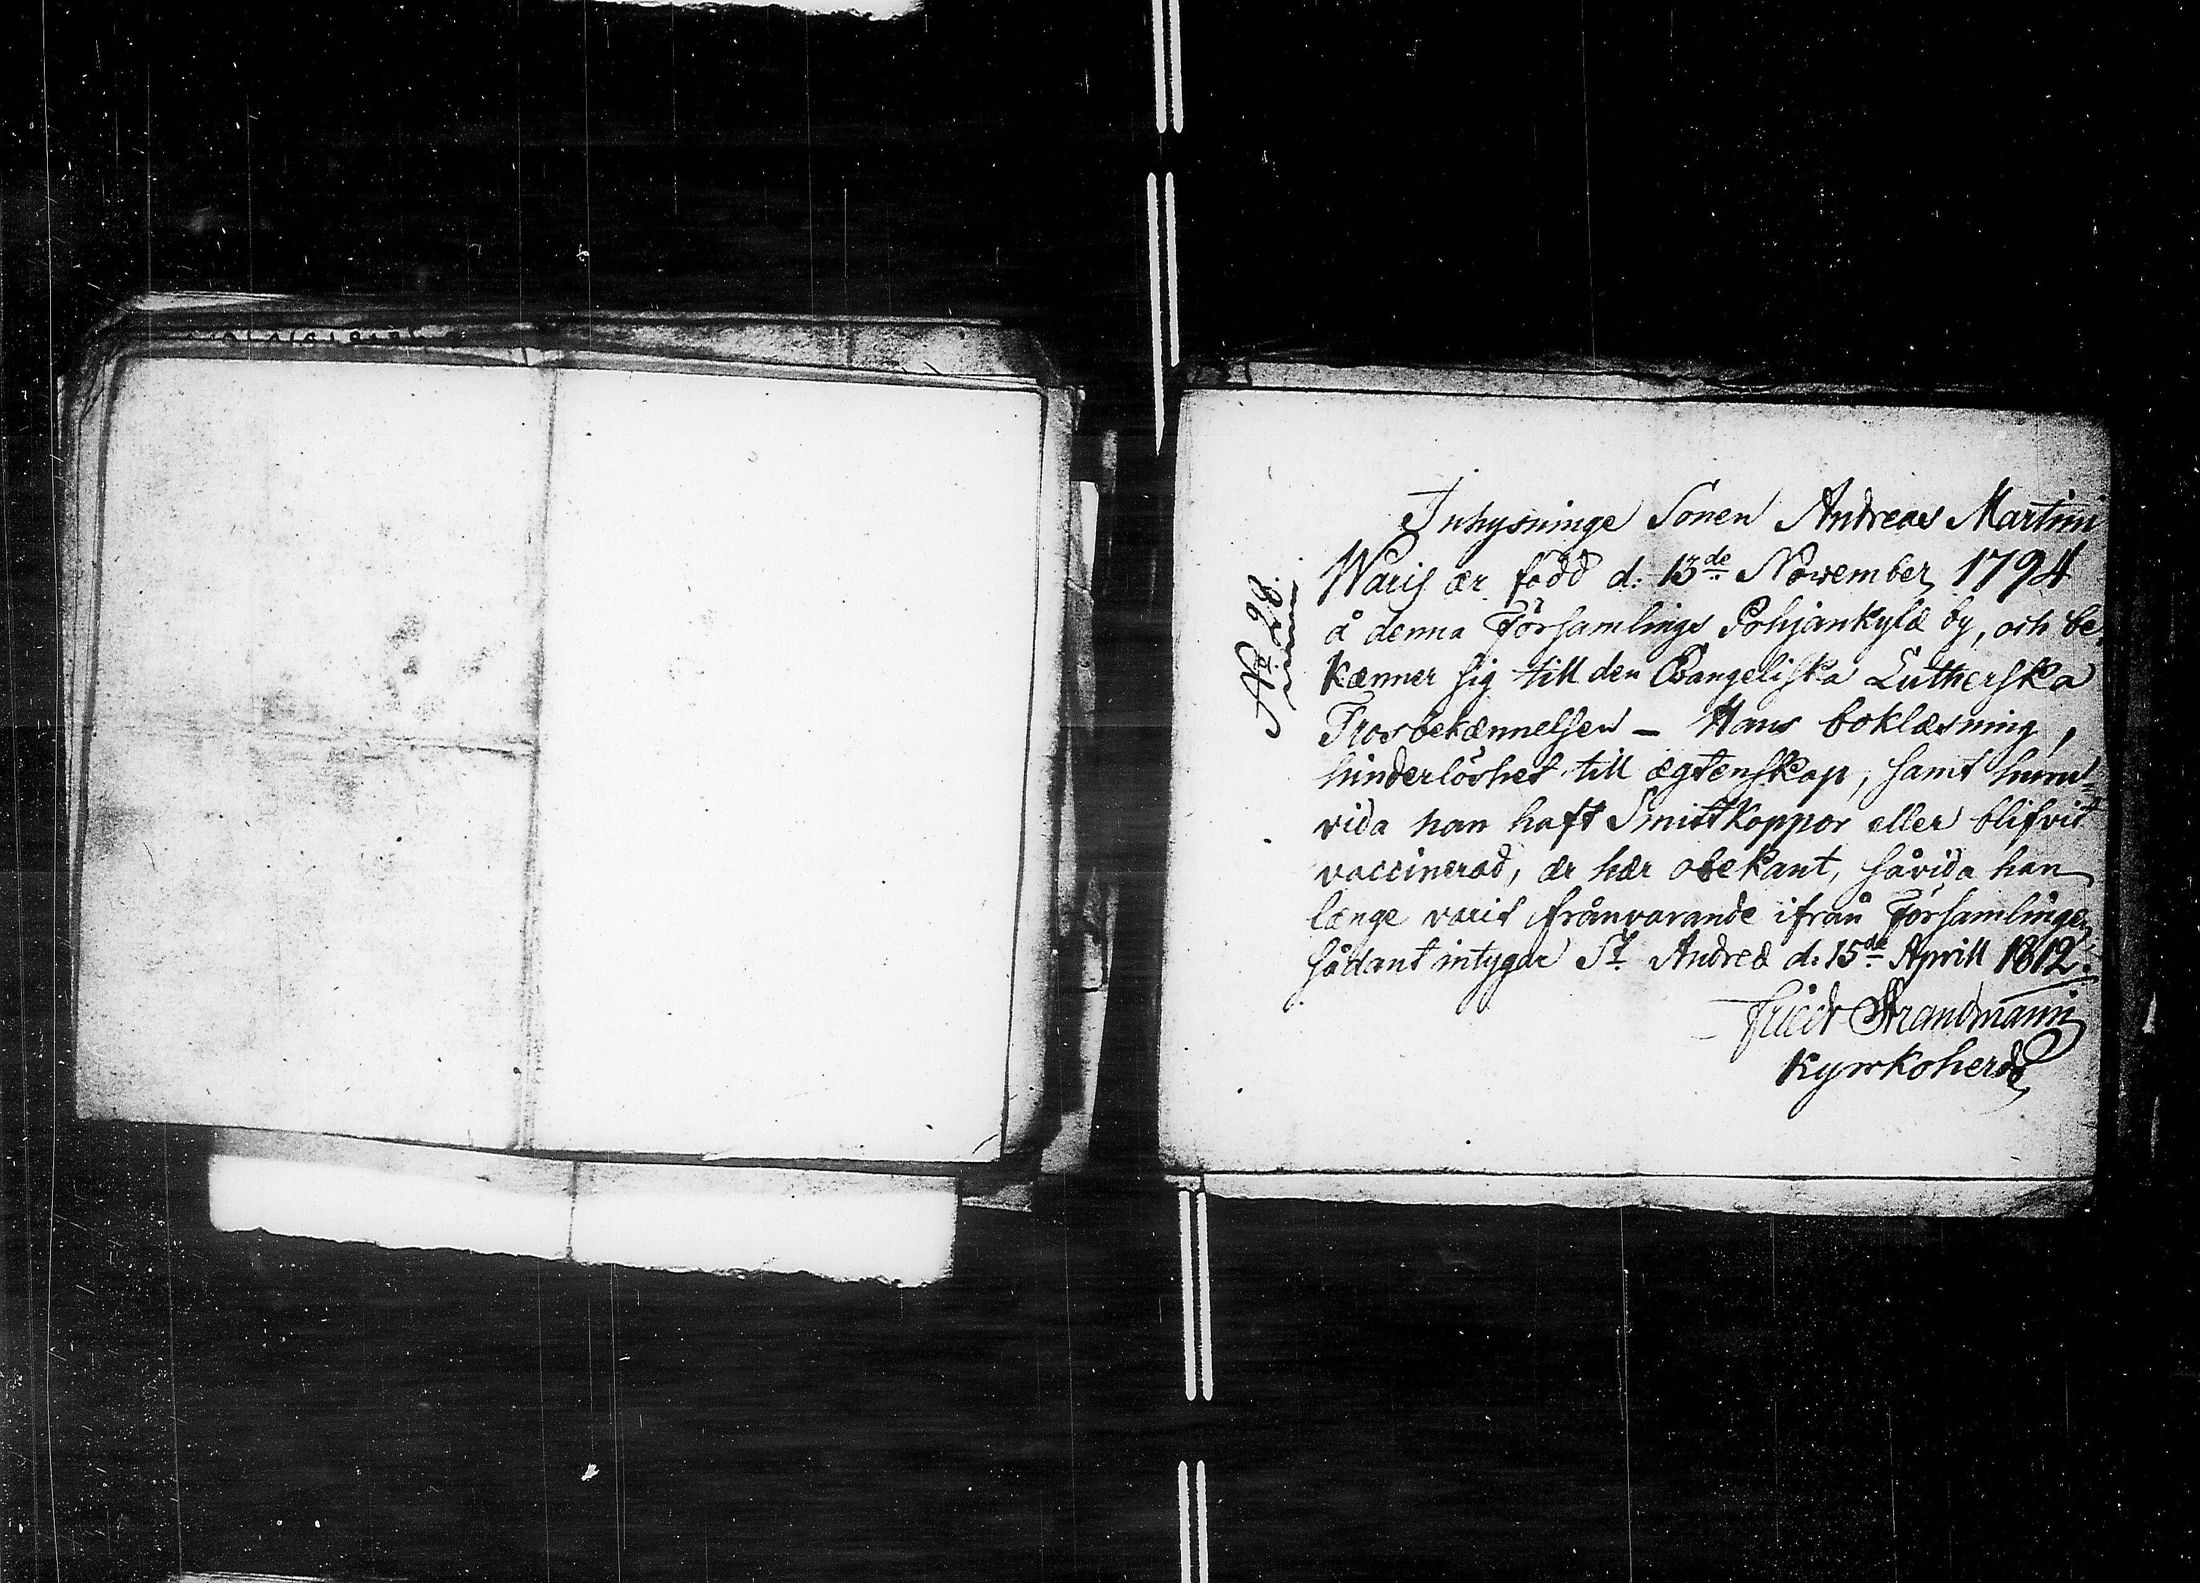 No 28.
Inhysninge Sonen Andreas Martini
Waris ær född d: 13de November 1794
å denna Församlings Pohjankylæ by, och be-
kænner sig till den Evangeliska Lutherska
Trosbekænnelsen – Hans boklæsning,
hinderlöshet till ægtenskap, samt huru-
vida han haft Smittkoppor eller blifvit
vaccinerad, ær hær obekant, såvida han
længe varit frånvarande ifrån Församlingen,
sådant intygar St. Andreæ d: 15de Aprill 1812.
Friedr Strandmann
Kyrkoherde